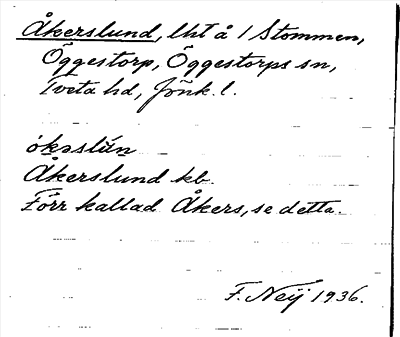 Åkerslund, lht å 1 Stommen,
Öggestorp, Öggestorps sn,
Tveta hd, Jönk. l.
ókəslún
Åkerslund kb.
Förr kallad Åkers, se detta.
F. Neij 1936.